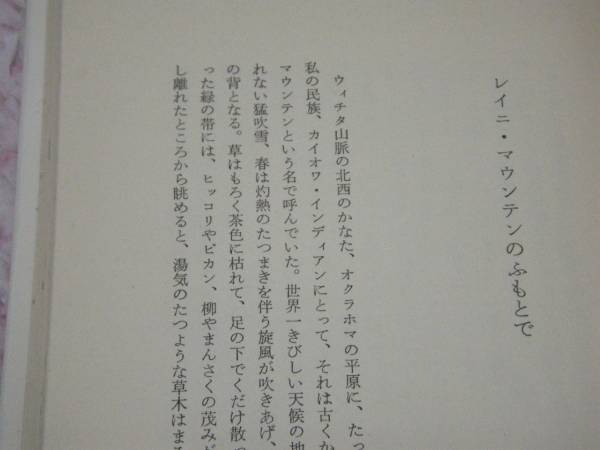 レイニ・マウンテンのふもとで
ウィチタ山脈の北西のかなた、オクラホマの平原に、たっ
私の民族、カイオワ・インディアンにとって、それは古くか
マウンテンという名で呼んでいた。世界一きびしい天候の地
れない猛吹雪、春は灼熱のたつまきを伴う旋風が吹きあげ、
の背となる。草はもろく茶色に枯れて、足の下でくだけ散
った緑の帯には、ヒッコリやピカン、柳やまんさくの茂みが
し離れたところから眺めると、湯気のたつような草木はまる